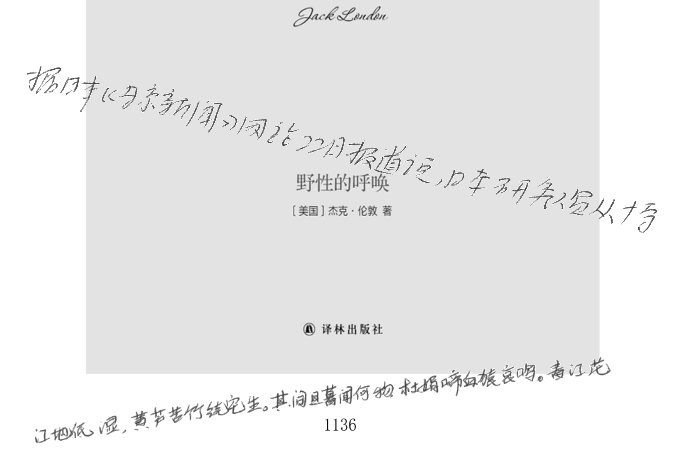 Jack London
据日本《每京新闻》网站22日报道说,日本研究人员从十与
野性的呼唤
[美国] 杰克·伦敦 著
译林出版社
江地低湿,黄芦苦竹绕宅生。其间旦暮闻何物 杜鹃啼血猿哀鸣。春江花
1136